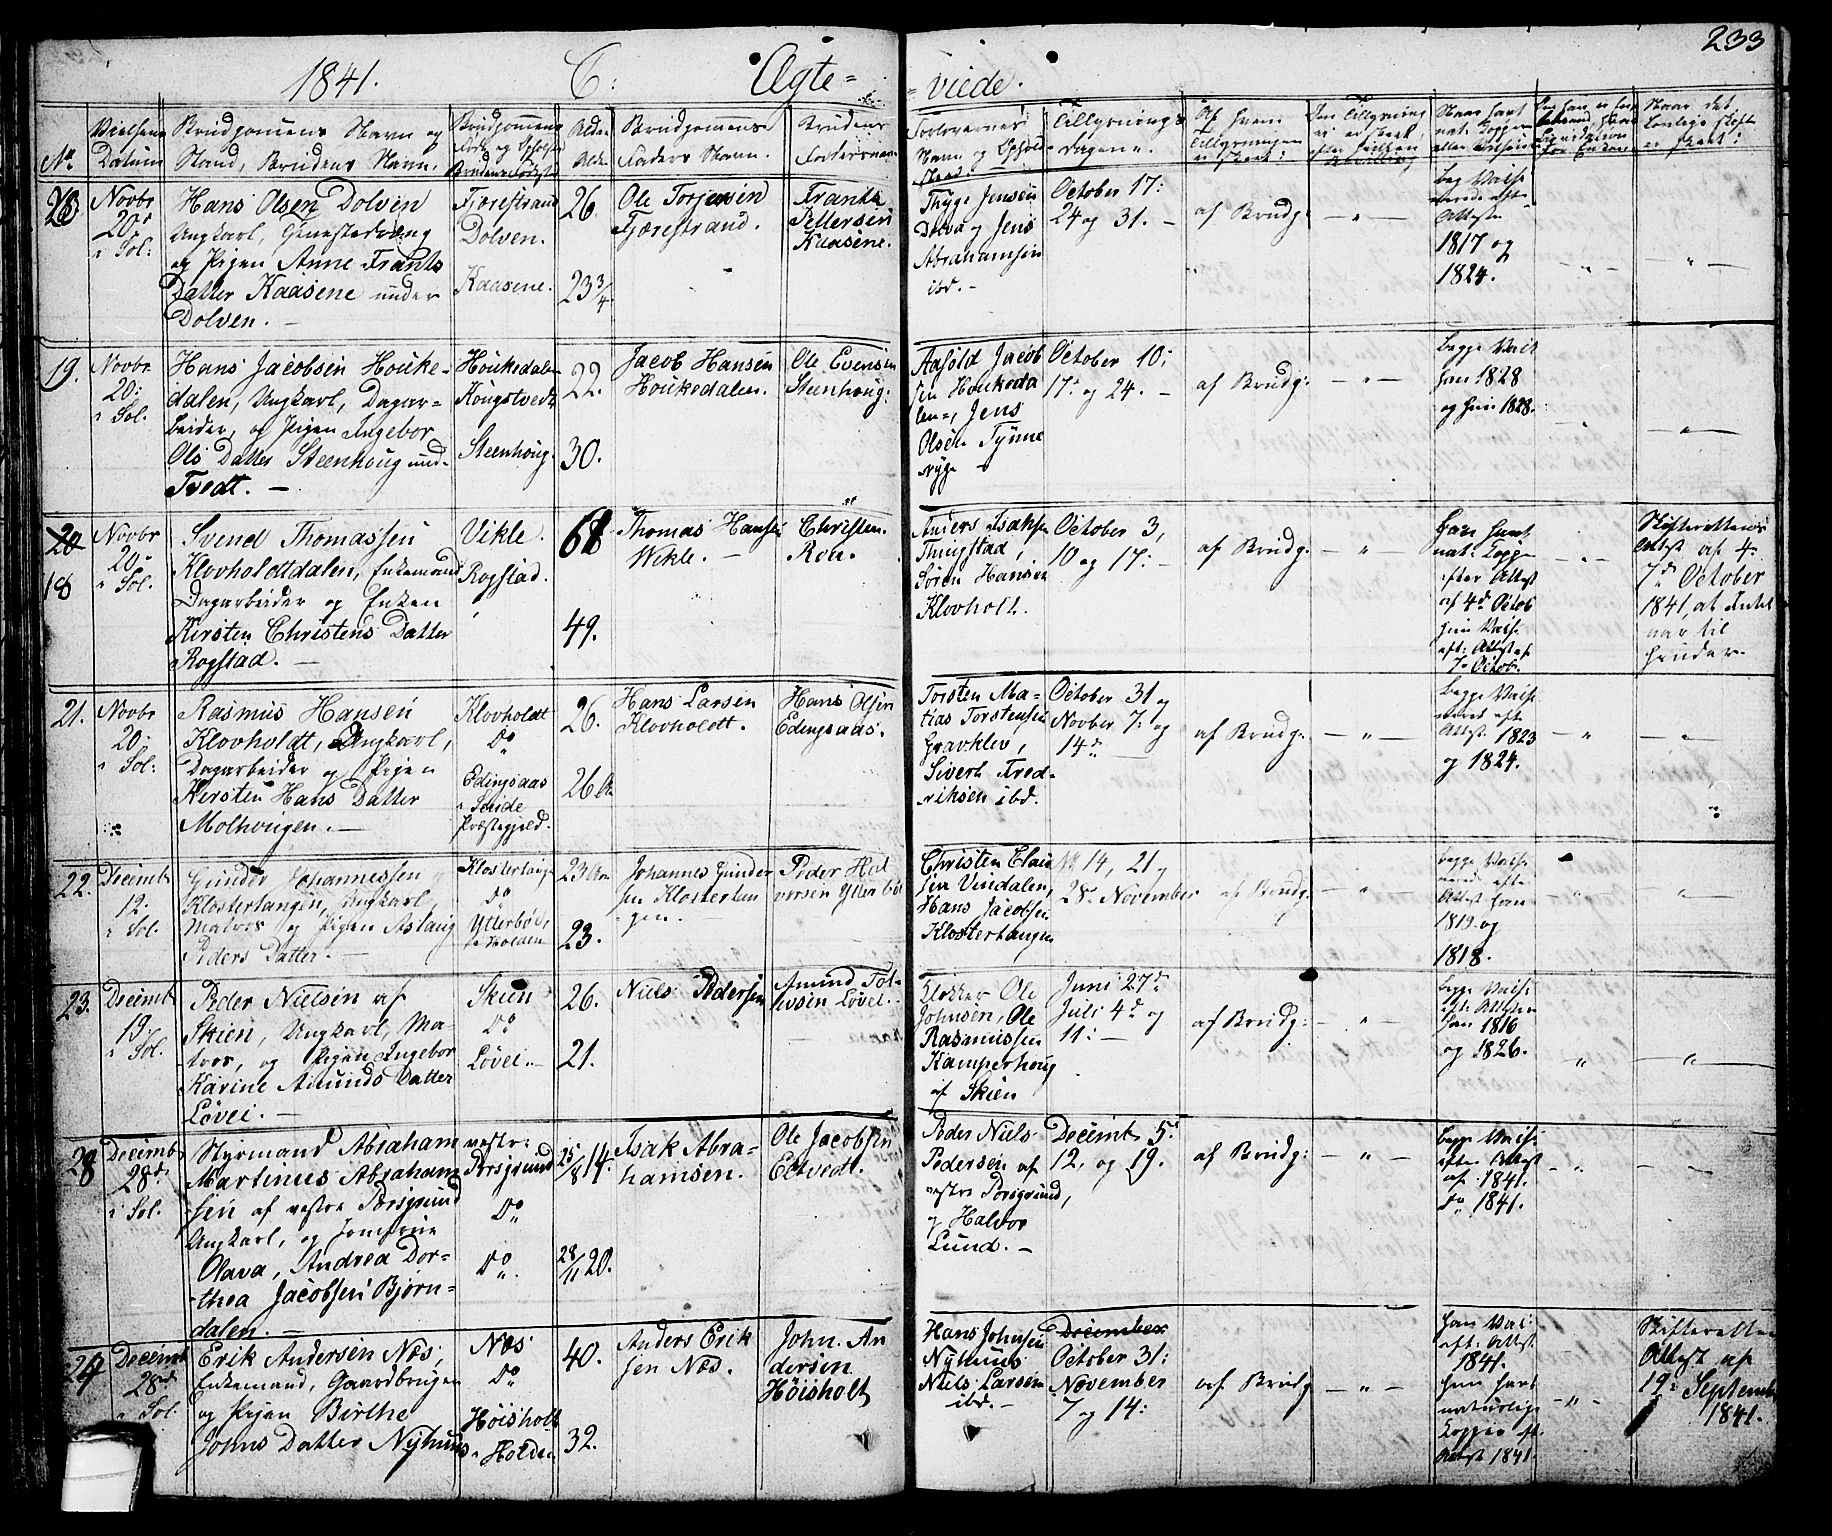 233
1841. C: Ægte=
viede.
No
Vielsens
Datum
Brudgommens Navn og
Stand, Brudens Navn.
Brudgommens
Føde og Opholds
Brudens Fødested
Alder
Alder
Brudgommens
Faders Navn.
Brudens
Faders navn
Forlovernes
Navn og Ophold
sted.
Tillysnings
dagen.
Af hvem
Tillysningen
er skeet:
Naar det
Lovlige skifte
er skeet:
20
Novbr
20de
i Sol:
Hans Olsen Dolven
Ungkarl,
og Pigen Anne Frants
Datter Kaasene under
Dolven. —
Fjærestrand
Dolven.
Kaasene.
26
23 3/4
Ole Torjersen
Fjærestrand.
Frants
Pettersen
Kaasene.
Thyge Jensen
Dolva og Jens
Abrahamsen
ibd. —
October 17:
24 og 31. —
af Brudg:
— „ —
Beg Vaks
nerede eft
Attest
1817 og
1824.
— „ —
— „ —
19.
Novbr
20:
i Sol.
Hans Jacobsen Houke-
dalen, Ungkarl, Dagar-
beider, og Pigen Ingebor
Ols Datter Steenhoug und-
Tvedt. —
Houkedalen
Kougstvedt
Steenhoug
22.
30.
Jacob Hansen
Houkedalen.
Ole Evensen
Steenhoug:
Aasold Jacob
sen Houkeda
len, Jens
Olsen Tynne
October 10:
17: og 24. —
af Brudg:
— „ —
Begge Vaks
han 1828
og hun 1828.
— „ —
20
18
Novbr
20de
i Sol.
Svend Thomassen
Klovholdtdalen, Enkemand
Dagarbeider og Enken
Kirsten Christens Datter
Rogstad. —
Vikle.
Rogstad.
68
49.
Thomas Hansen
Wikle. —
Christen
Roe.
Anders Isaksen
Thrugstad,
Søren Hansen
Klovholt.
October 3,
10 og 17: —
af Brudg:
— „
han havt
nat: Kopper
efter Attest
af 4de Octob
hun Vaks.
eft: Attest af
7de Octob.
— „ —
Skifterettens
Attest af 4.
7de October
1841, at Intet
var til
hinder.
21.
Novbr
20:
i Sol:
Rasmus Hansen
Klovholdt, Ungkarl,
Dagarbeider og Pigen
Kirsten Hans Datter
Molhougen. —
Klovholdt
Do
Edingsaas
i Seude
Præstegjeld.
26.
26 Aar
Hans Larsen
Klovholdt.
Hans Olsen
Edingsaas.
Torsten Ma-
tias Torstensen
Gravklev,
Sivert Fred-
riksen ibd.
October 31 og
Novber 7: og
14de
af Brudg:
— „ —
Begge Vaks
neret eft
Attest 1823
og 1824.
„
— „ —
22.
Decemb
12.
i Sol.
Gunder Johannessen
Klostertangen, Ungkarl,
Matros og Pigen Aslaug
Peders Datter. —
Klostertange
Do
Ytterbøe,
i Holden
23 Aar
23.
Johannes Gunder
sen Klostertan
gen.
Peder Hal
vorsen Ytterbøe
Christen Clau
sen Vindalen,
Hans Jacobsen
Klostertangen
14, 21 og
28de November
af Brudg:
— „ —
Begge Vaks
nerede efte
Attest han
1819 og
1818.
„
„
23.
Decemb
19:
i Sol.
Peder Nielsen af
Skien, Ungkarl, Ma-
tros, og Pigen Ingebor
Karine Amunds Datter
Løvei. —
Skien
Do
Løvei.
26.
21.
Niels Pedersen
Amund Tol-
levsen Løvei.
Klokker Ole
Johnsen, Ole
Rasmussen
Kamperhoug
af Skien
Juni 27de
Juli 4de og
11: —
af Brudg:
— „ —
Begge Vaks
eft: Attester
han 1816
og 1826.
„
„
28
Decemb
28de
i Sol.
Styrmand Abraham
Martinus Abraham
sen af vestre Porsgrund
Ungkarl, og Jomfrue
Olava, Andrea Dor-
thea Jacobsen Bjørn-
dalen. —
vestre
Porsgrund
Do
Do.
25 8/14.
28/11 20.
Isak Abra-
hamsen.
Ole Jacobsen
Eetvedt.
Peder Niels
Pedersen af
vestre Porsgrund,
og Halvor
Lund. —
Decemb 5.
12, og 19.
af Brudg:
— „ —
Begge Vaks:
efter Attest
af 1841.
Do 1841.
— „
— „ —
24
Decemb
28de
i Sol.
Erik Andersen Næs,
Enkemand, Gaardbruger
og Pigen Birthe
Johns Datter Nyhuus
Næs
Do
Høisholt
i Holden
40.
32.
Anders Erik
sen Næs.
John An
dersen
Høisholt
Hans Johnsen
Nyhuus
Niels Larsen
ibd. —
December
October 31:
November
7 og 14:
af Brudg
— „ —
han Vak:
eft: Attest
1841.
hun havt
naturlige
Kopper eft.
Attest 1841.
— „ —
Skifteretten
Attest af
19: Septemb
1841.